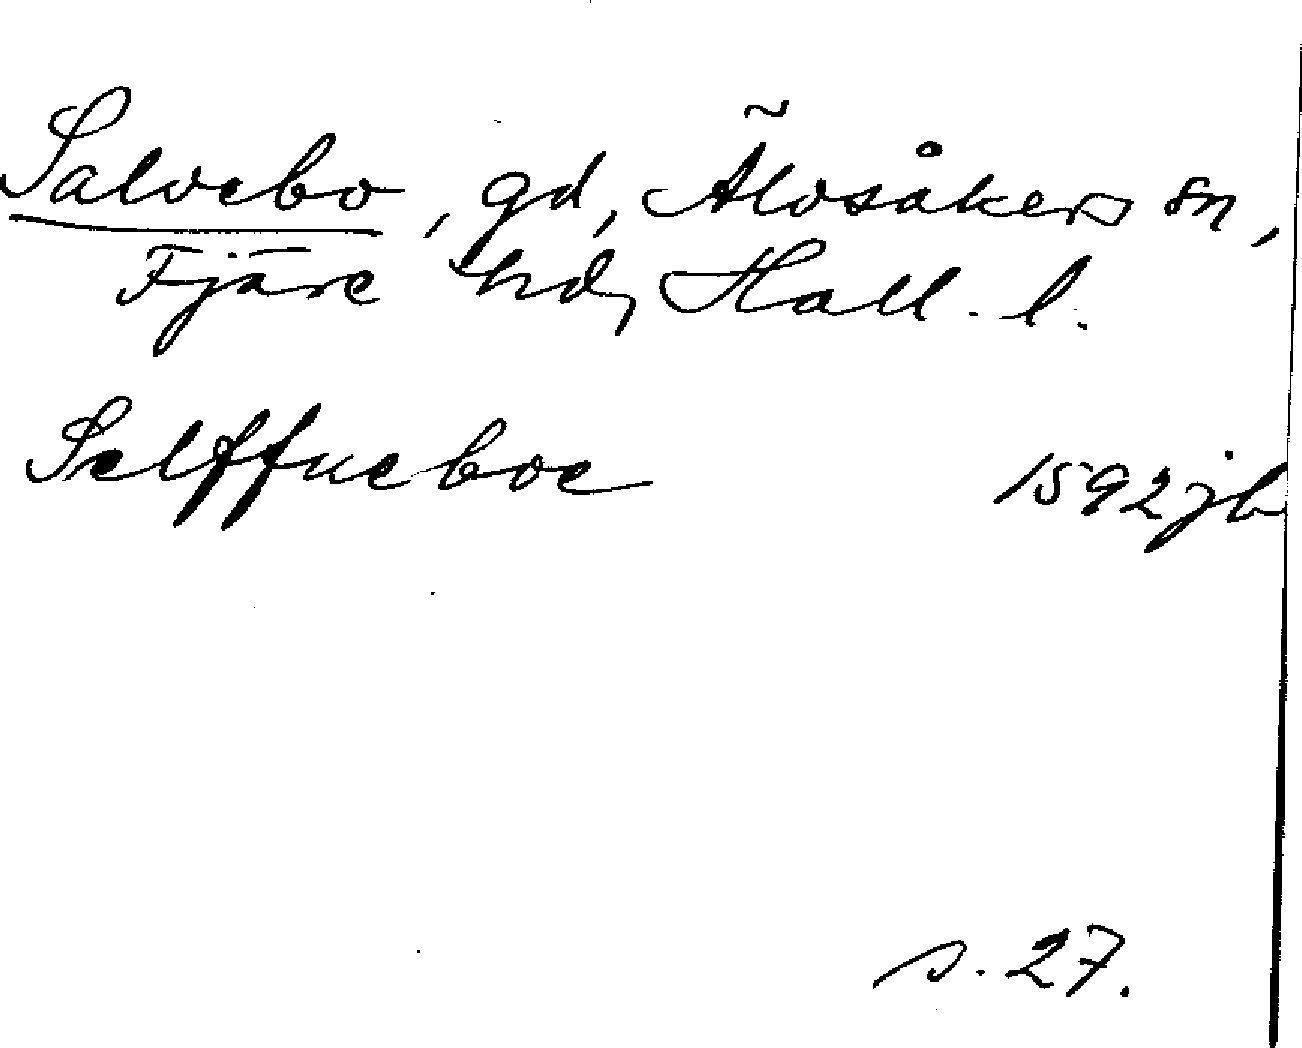 Salvebo, gd, Älvsåkers sn,
Fjäre hd, Hall. l.
Selffueboe 1592 jb
s. 27.